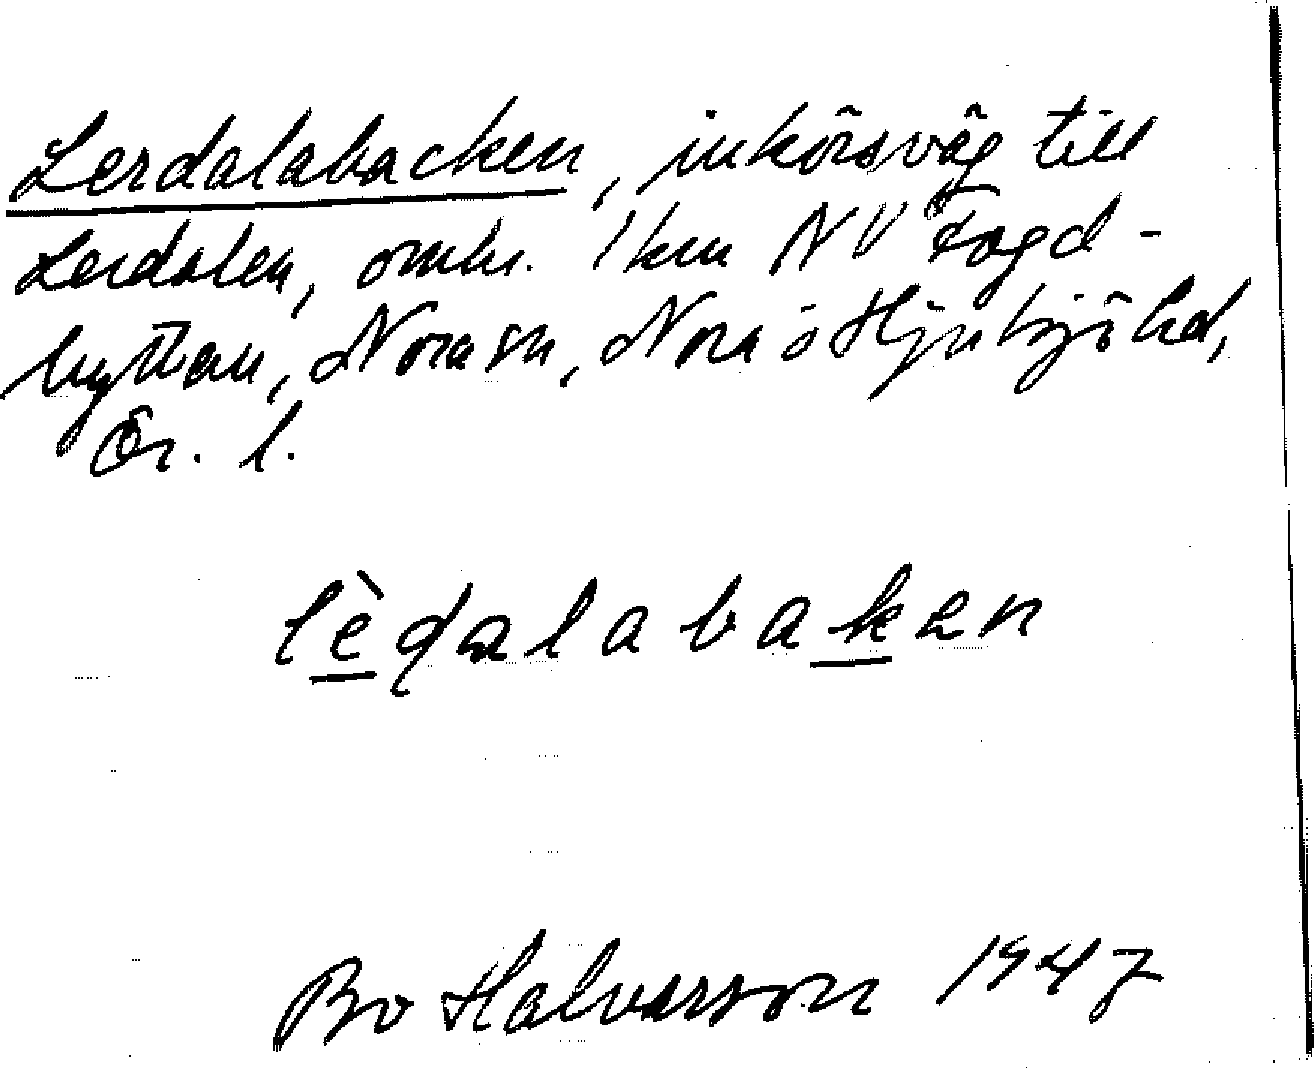 Lerdalabacken, inkörsväg till
Lerdalen, omkr. 1 km NV Fogd-
hyttan, Nora sn, Nora o Hjulsjö hd,
Ör. l.
lèdalabaken
Bo Halvarson 1947